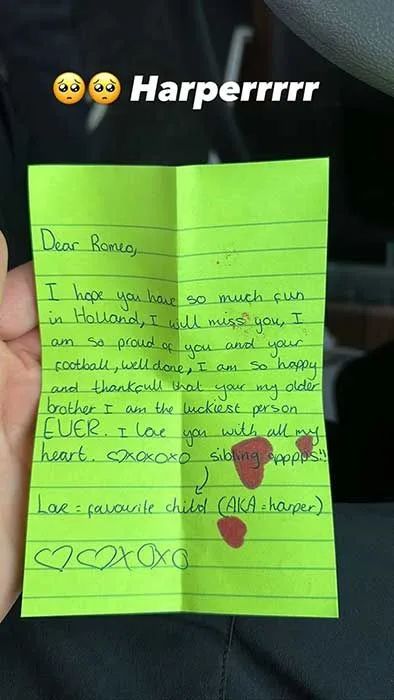 🥺🥺 Harperrrrr
Dear Romeo,
I hope you have so much fun
in Holland, I will miss you, I
am so proud of you and your
football, well done, I am so happy
and thankfull that your my older
brother I am the luckiest person
EVER. I love you with all my
heart. ♡xoxoxo sibling
Love = favourite child (AKA = harper)
♡♡xoxo